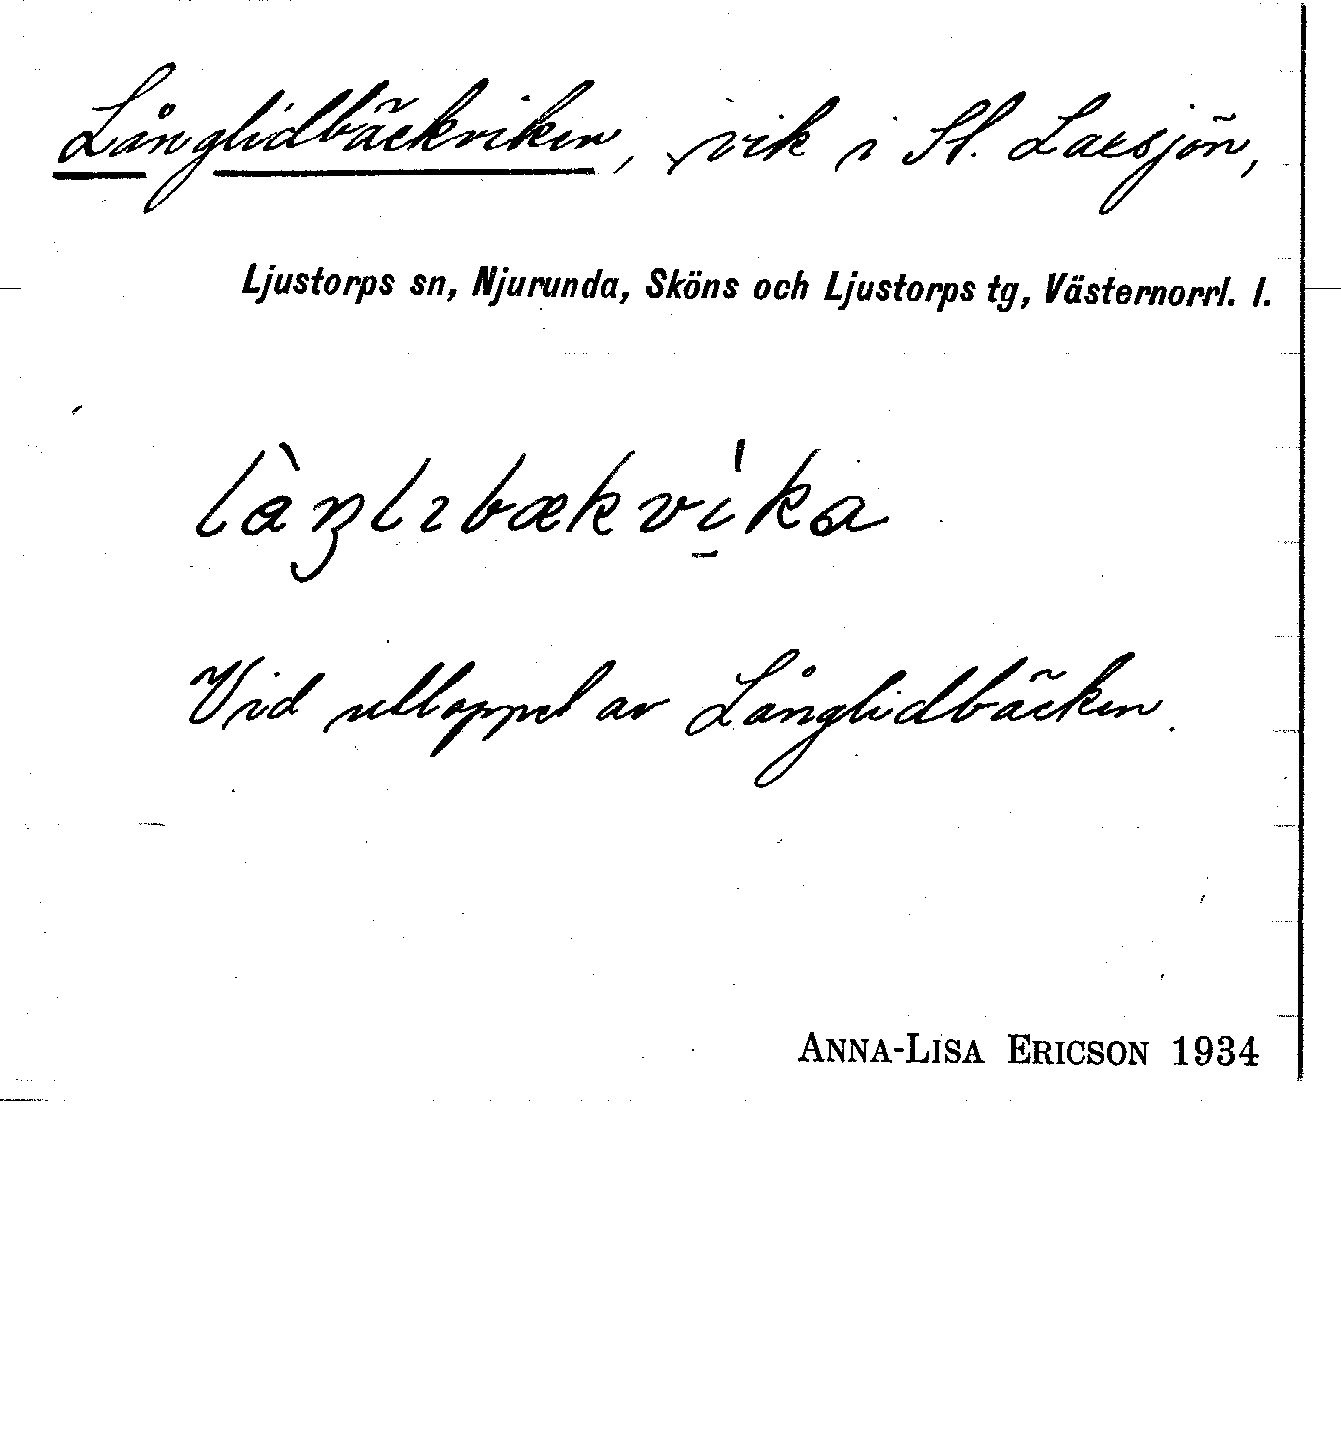 Långlidbäckviken, vik i St. Laxsjön,
Ljustorps sn, Njurunda, Sköns och Ljustorps tg, Västernorrl. l.
làŋlɪbækvi̱ka
Vid utloppet av Långlidbäcken.
ANNA-LISA ERICSON 1934